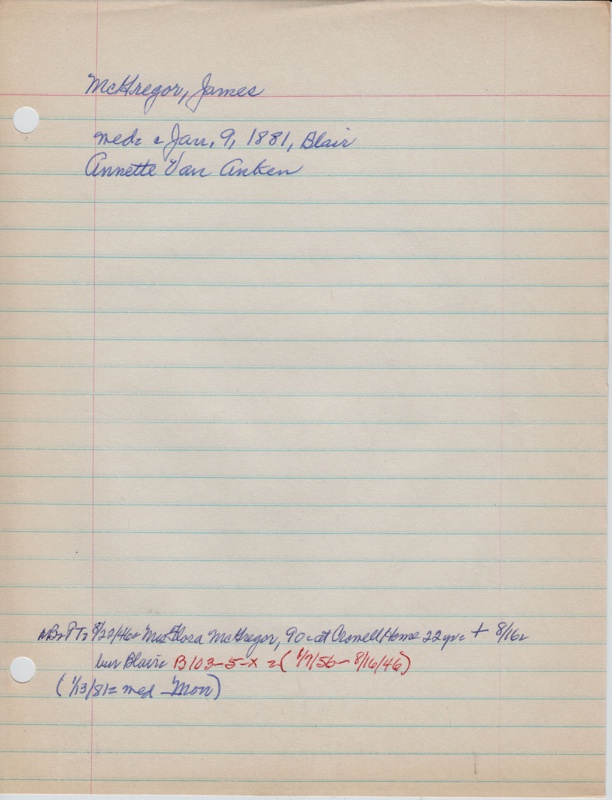 McGregor, James
med: c Jan. 9, 1881, Blair
Annette Van Anken
8/22/46 Mrs Flora McGregor, 90 - at Crowell Home 22 yrs + 8/16
bur Blair: B103-5-x = (1/7/56 - 8/16/46)
(1/13/81 = med Mon)